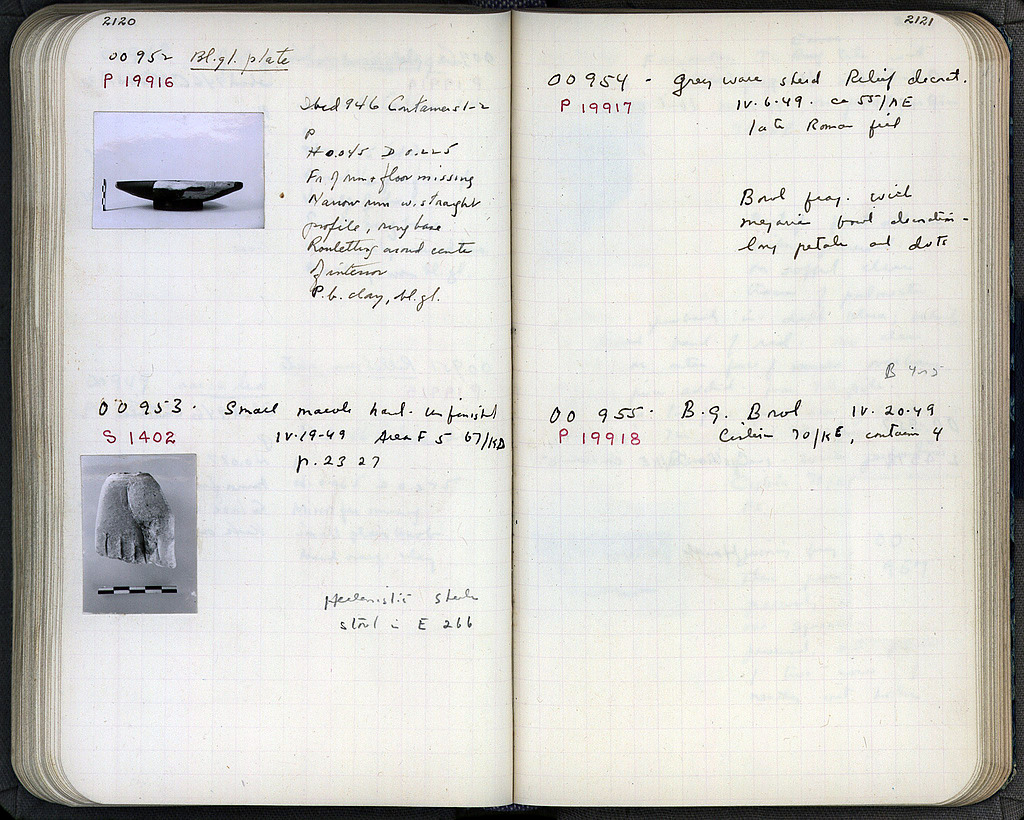 2120
OO 952 Bl.gl. plate
P 19916
946 Containers 1-2
P
H 0.045 D 0.225
Fr. of rim + floor missing
Narrow rim w. straight
profile, ring base
Rouletting around centre
of interior
P.b. clay, bl.gl.
OO 953. Small marble hand. unfinished
S 1402
IV-19-49 Area F 5 67/
p. 23 27
Hellenistic
E 266
2121
OO 954 - Grey ware sherd Relief decorat.
P 19917
IV.6.49. ca 55/ΛE
late Roman fill
Bowl frag. with
megarian bowl decoration -
long petals and dots
B 4-5
OO 955. B.G. Bowl IV.20.49
P 19918
Cistern 70/ΚΕ, contain 4